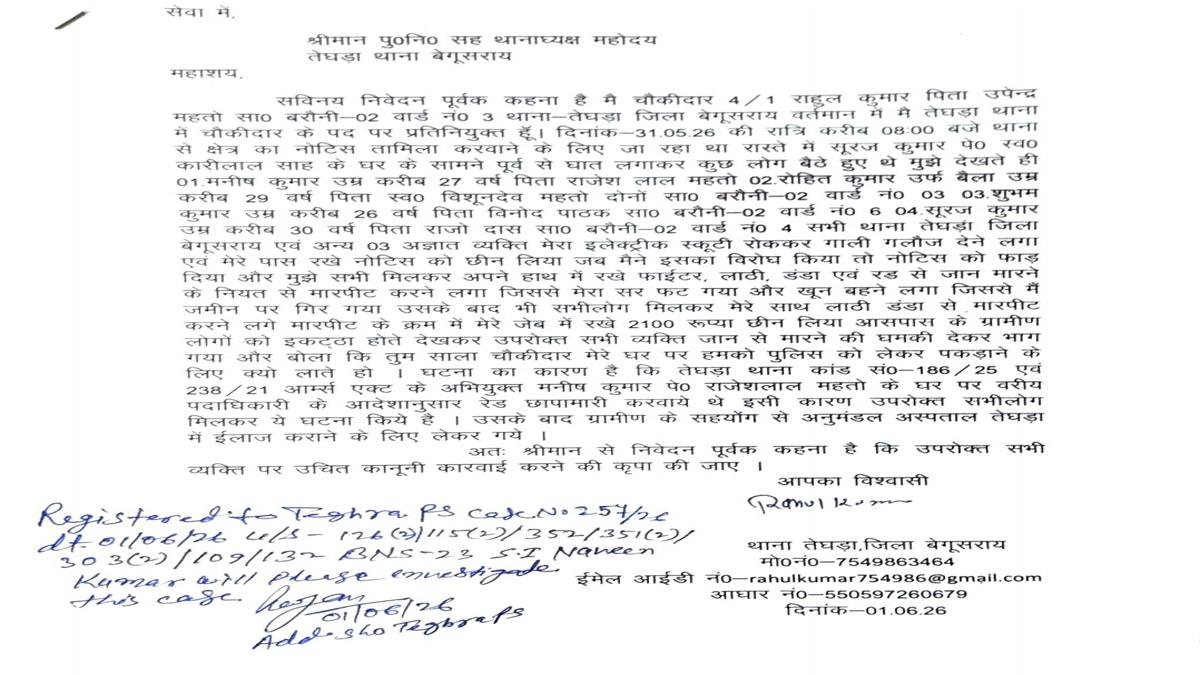 सेवा में,
श्रीमान पु0नि0 सह थानाध्यक्ष महोदय
तेघड़ा थाना बेगूसराय
महाशय,
सविनय निवेदन पूर्वक कहना है मै चौकीदार 4/1 राहुल कुमार पिता उपेन्द्र
महतो सा0 बरौनी–02 वार्ड नं0 3 थाना–तेघड़ा जिला बेगूसराय वर्तमान में मै तेघड़ा थाना
में चौकीदार के पद पर प्रतिनियुक्त हूँ। दिनांक–31.05.26 की रात्रि करीब 08:00 बजे थाना
से क्षेत्र का नोटिस तामिला करवाने के लिए जा रहा था रास्ते में सूरज कुमार पे0 स्व0
कारीलाल साह के घर के सामने पूर्व से घात लगाकर कुछ लोग बैठे हुए थे मुझे देखते ही
01.मनीष कुमार उम्र करीब 27 वर्ष पिता राजेश लाल महतो 02.रोहित कुमार उर्फ बैला उम्र
करीब 29 वर्ष पिता स्व0 विशूनदेव महतो दोनों सा0 बरौनी–02 वार्ड नं0 03 03.शुभम
कुमार उम्र करीब 26 वर्ष पिता विनोद पाठक सा0 बरौनी–02 वार्ड नं0 6 04.सूरज कुमार
उम्र करीब 30 वर्ष पिता राजो दास सा0 बरौनी–02 वार्ड नं0 4 सभी थाना तेघड़ा जिला
बेगूसराय एवं अन्य 03 अज्ञात व्यक्ति मेरा इलेक्ट्रीक स्कूटी रोककर गाली गलौज देने लगा
एवं मेरे पास रखे नोटिस को छीन लिया जब मैने इसका विरोध किया तो नोटिस को फाड़
दिया और मुझे सभी मिलकर अपने हाथ में रखे फाईटर, लाठी, डंडा एवं रड से जान मारने
के नियत से मारपीट करने लगा जिससे मेरा सर फट गया और खून बहने लगा जिससे मैं
जमीन पर गिर गया उसके बाद भी सभीलोग मिलकर मेरे साथ लाठी डंडा से मारपीट
करने लगे मारपीट के क्रम में मेरे जेब में रखे 2100 रूप्या छीन लिया आसपास के ग्रामीण
लोगों को इकट्ठा होते देखकर उपरोक्त सभी व्यक्ति जान से मारने की घमकी देकर भाग
गया और बोला कि तुम साला चौकीदार मेरे घर पर हमको पुलिस को लेकर पकड़ाने के
लिए क्यो लाते हो । घटना का कारण है कि तेघड़ा थाना कांड सं0–186/25 एवं
238/21 आर्म्स एक्ट के अभियुक्त मनीष कुमार पे0 राजेशलाल महतो के घर पर वरीय
पदाधिकारी के आदेशानुसार रेड छापामारी करवाये थे इसी कारण उपरोक्त सभीलोग
मिलकर ये घटना किये है । उसके बाद ग्रामीण के सहयोंग से अनुमंडल अस्पताल तेघड़ा
में ईलाज कराने के लिए लेकर गये ।
अतः श्रीमान से निवेदन पूर्वक कहना है कि उपरोक्त सभी
व्यक्ति पर उचित कानूनी कारवाई करने की कृपा की जाए ।
आपका विश्वासी
Rahul Kumar
Registered to Teghra PS Case No 257/26
dt. 01/06/26 U/S- 126(2)/115(2)/352/351(2)/
303(2)/109/132 BNS-23 S.I Naveen
Kumar will please investigate
this case.
01/06/26
Add. SHO Teghra PS
थाना तेघड़ा,जिला बेगूसराय
मो0नं0–7549863464
ईमेल आईडी नं0–rahulkumar754986@gmail.com
आधार नं0–550597260679
दिनांक–01.06.26